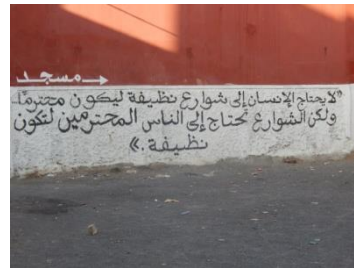 مسجد
"لا يحتاج الإنسان إلى شوارع نظيفة ليكون محترمًا
ولكن الشوارع تحتاج إلى الناس المحترمين لتكون
نظيفة.»